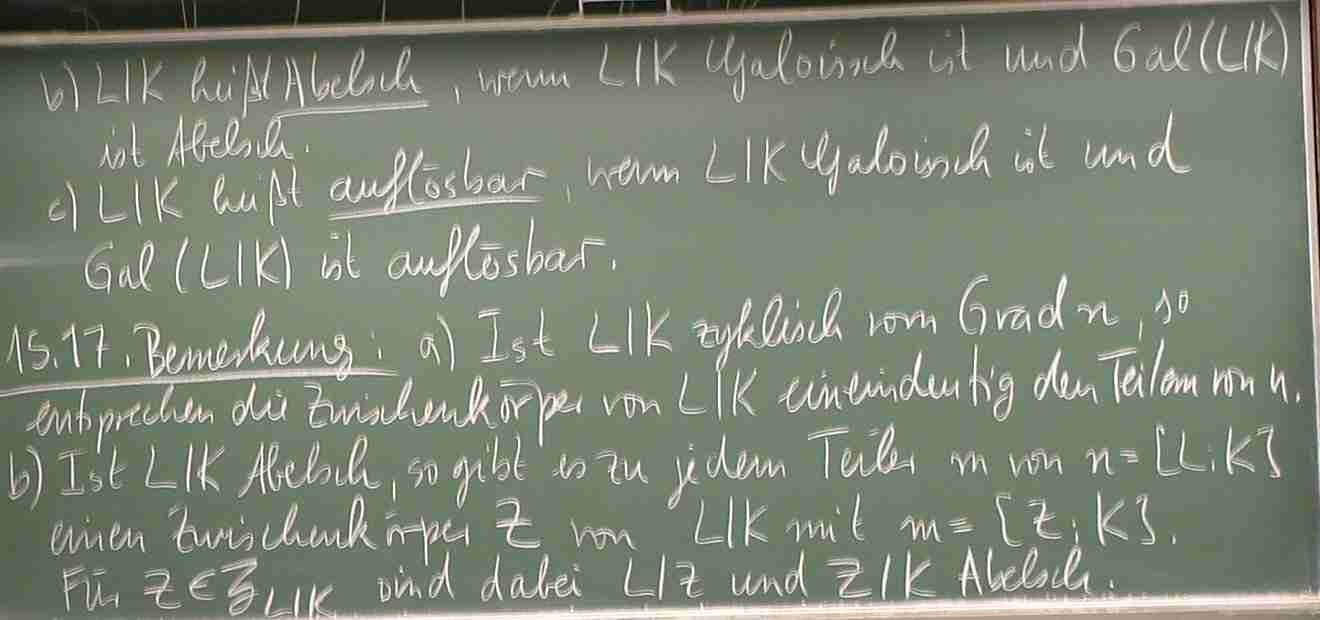 b) L|K heißt Abelsch, wenn L|K Galoissch ist und Gal(L|K)
ist Abelsch.
c) L|K heißt auflösbar, wenn L|K Galoissch ist und
Gal(L|K) ist auflösbar.
15.17. Bemerkung: a) Ist L|K zyklisch vom Grad n, so
entsprechen die Zwischenkörper von L|K eineindeutig den Teilern von n.
b) Ist L|K Abelsch, so gibt es zu jedem Teiler m von n=[L:K]
einen Zwischenkörper Z von L|K mit m=[Z:K].
Für Z∈ℨ_{L|K} sind dabei L|Z und Z|K Abelsch.